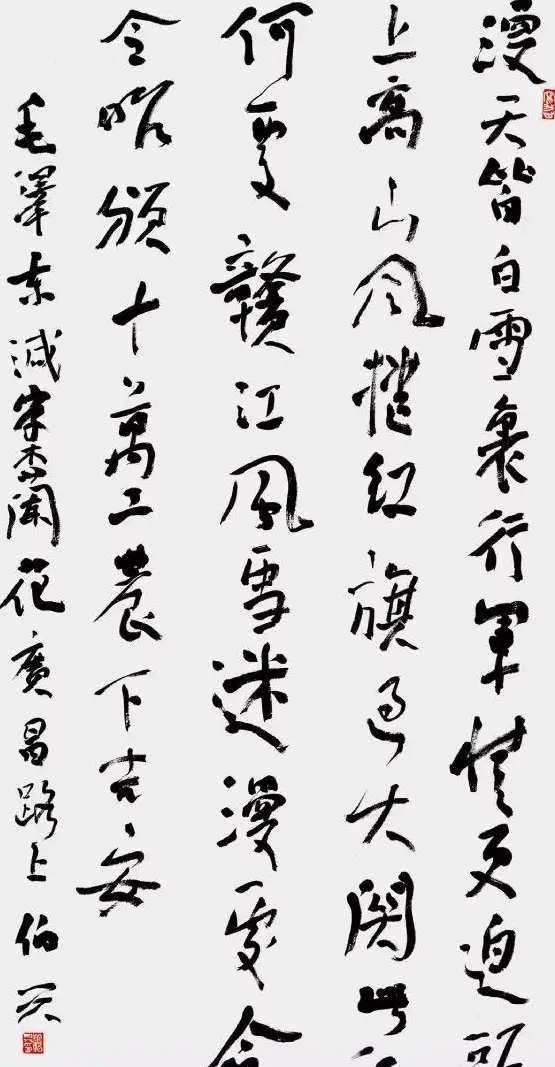 漫天皆白雪裏行軍情更迫頭
上高山風捲紅旗過大關此
何處贛江風雪迷漫處命
令昨頒十萬工農下吉安
毛澤東減字木蘭花廣昌路上伯